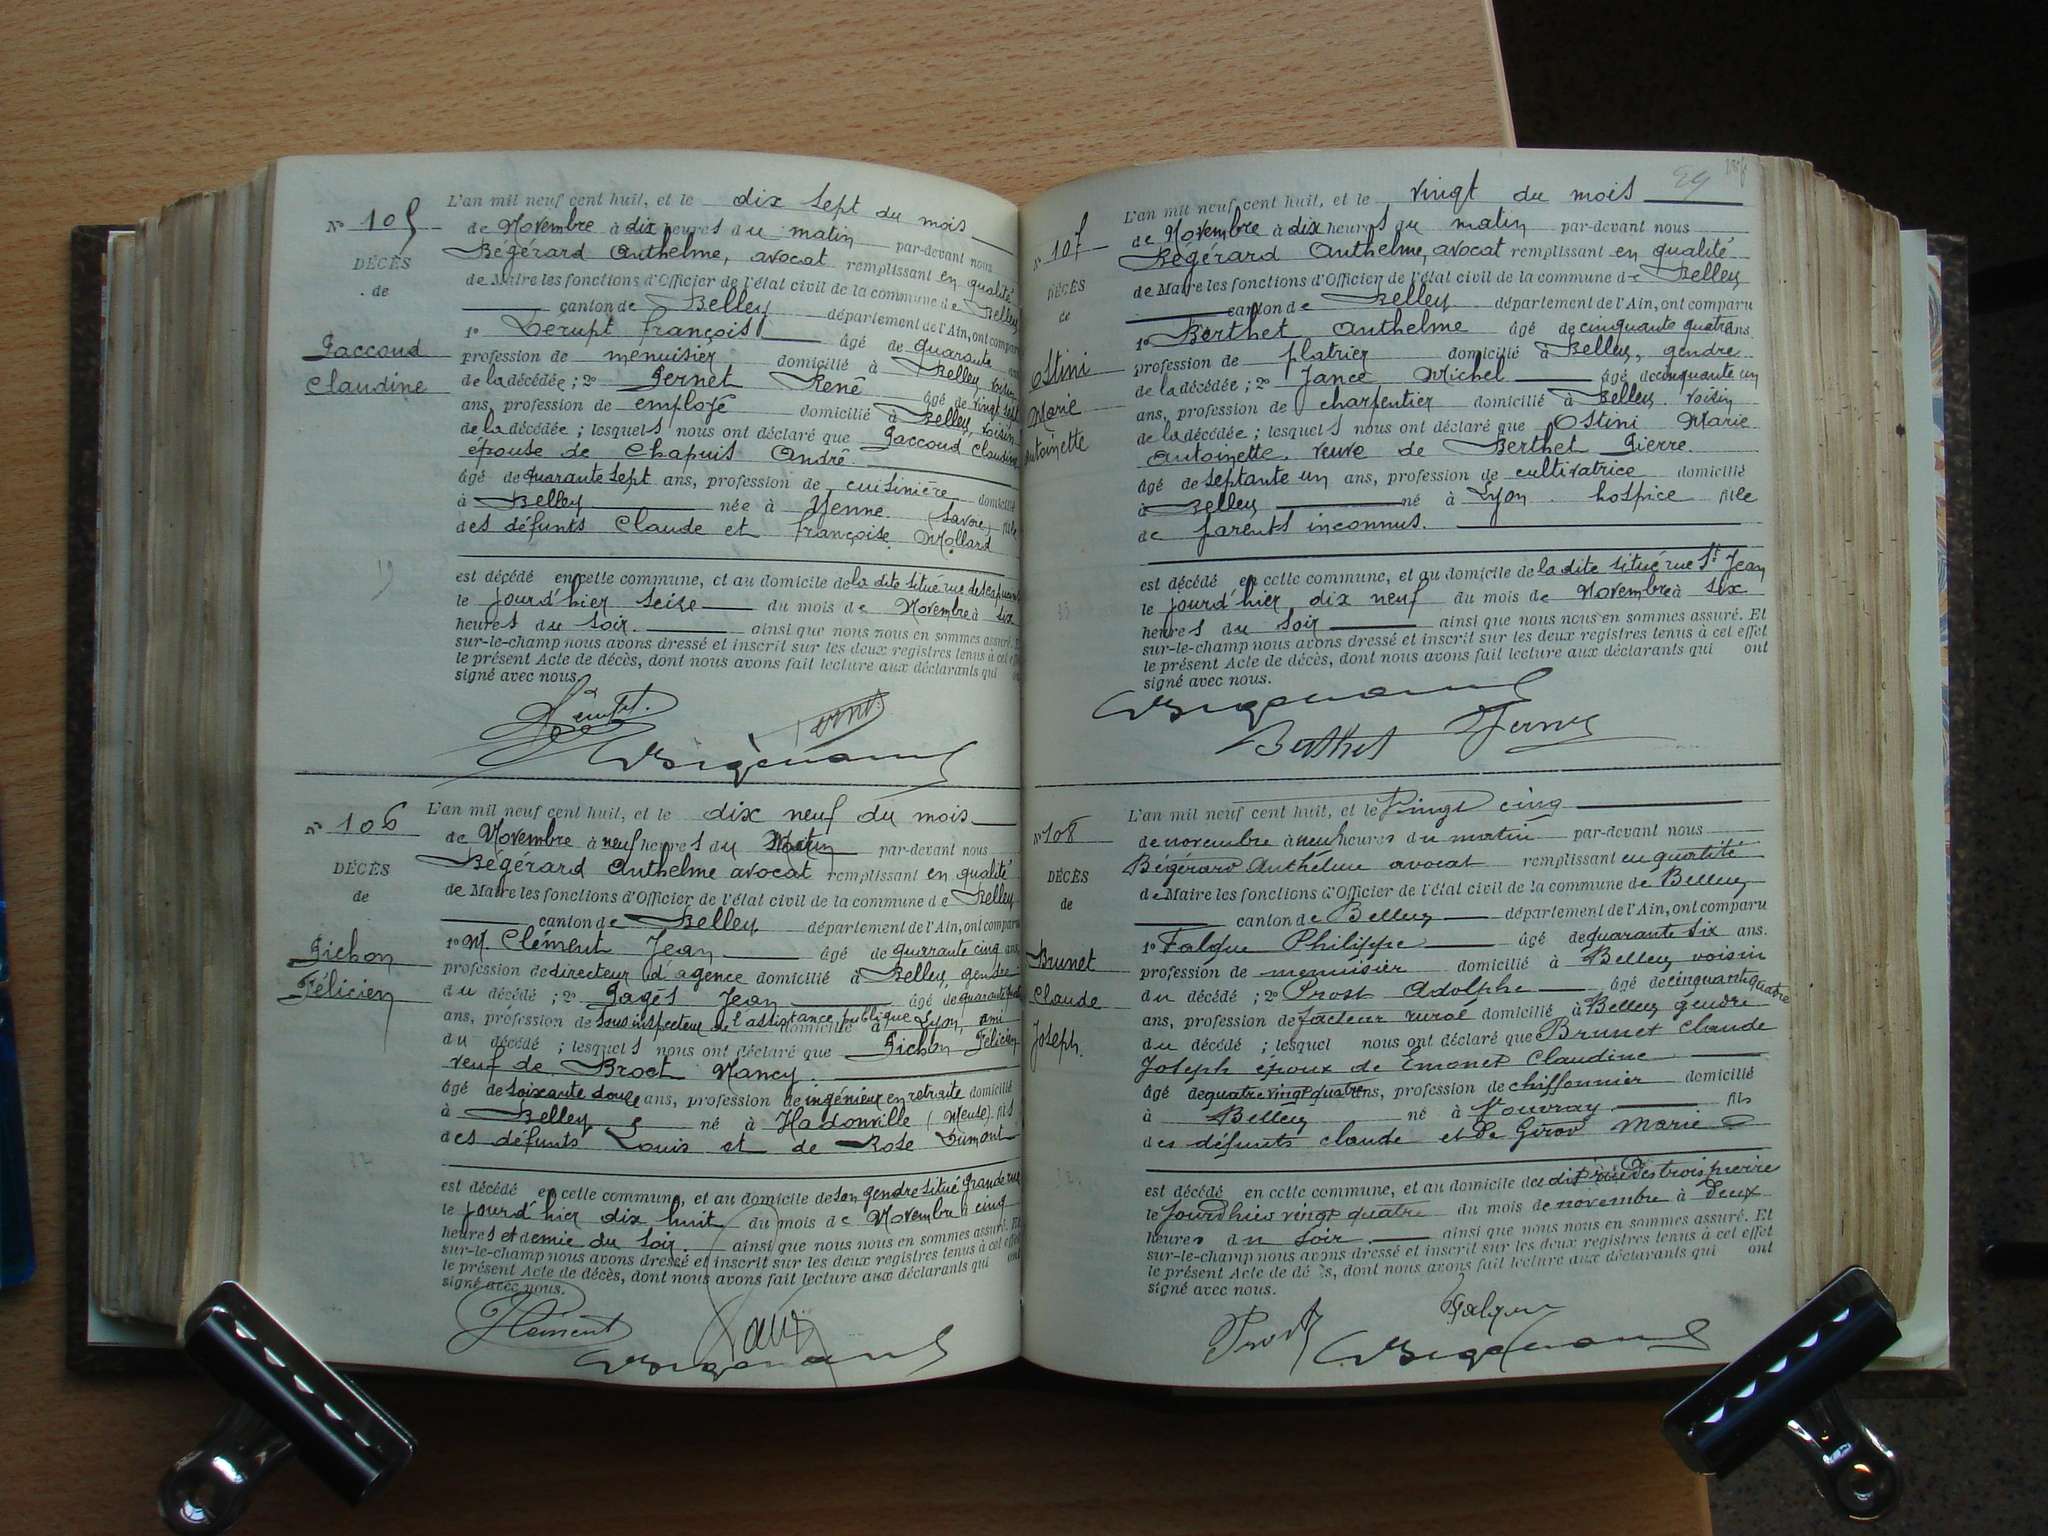 N° 105
DÉCÈS
de
Paccoud
Claudine
L'an mil neuf cent huit, et le dix sept du mois
de Novembre à dix heures du matin par-devant nous
Bégérard Anthelme, avocat remplissant en qualité
de Maire les fonctions d'Officier de l'état civil de la commune de Belley
canton de Belley département de l'Ain, ont comparu
1° Derupt françois âgé de quarante ans
profession de menuisier domicilié à Belley, voisin
de la décédée ; 2° Pernet René âgé de vingt sept
ans, profession de employé domicilié à Belley, voisin
de la décédée ; lesquels nous ont déclaré que Paccoud Claudine
épouse de Chapuis André
âgé de quarante sept ans, profession de cuisinière domicilié
à Belley née à Yenne (Savoie) fille
des défunts Claude et françoise Mollard
est décédé en cette commune, et au domicile de la dite situé rue des
le jourd'hier seise du mois de Novembre à six
heures du soir. ainsi que nous nous en sommes assuré. Et
sur-le-champ nous avons dressé et inscrit sur les deux registres tenus à cet effet
le présent Acte de décès, dont nous avons fait lecture aux déclarants qui ont
signé avec nous.
N° 106
DÉCÈS
de
Pichon
Félicien
L'an mil neuf cent huit, et le dix neuf du mois
de Novembre à neuf heures du Matin par-devant nous
Bégérard Anthelme avocat remplissant en qualité
de Maire les fonctions d'Officier de l'état civil de la commune de Belley
canton de Belley département de l'Ain, ont comparu
1° M. Clément Jean âgé de quarante cinq ans,
profession de directeur d'agence domicilié à Belley, gendre
du décédé ; 2° Pagès Jean âgé de quarante
ans, profession de sous inspecteur de l'assistance publique domicilié à Lyon, ami
du décédé ; lesquels nous ont déclaré que Pichon Félicien
veuf de Broct Nancy
âgé de soixante douze ans, profession de ingénieur en retraite domicilié
à Belley né à Hadonville (Meuse) fils
des défunts Louis et de Rose Dumont
est décédé en cette commune, et au domicile de son gendre situé grande rue
le jourd'hier dix huit du mois de Novembre à cinq
heures et demie du soir. ainsi que nous nous en sommes assuré. Et
sur-le-champ nous avons dressé et inscrit sur les deux registres tenus à cet effet
le présent Acte de décès, dont nous avons fait lecture aux déclarants qui ont
signé avec nous.
Clément
N° 107
DÉCÈS
de
Ostini
Marie
Antoinette
L'an mil neuf cent huit, et le vingt du mois
de Novembre à dix heures du matin par-devant nous
Bégérard Anthelme, avocat remplissant en qualité
de Maire les fonctions d'Officier de l'état civil de la commune de Belley
canton de Belley département de l'Ain, ont comparu
1° Berthet Anthelme âgé de cinquante quatre ans.
profession de platrier domicilié à Belley, gendre
de la décédée ; 2° Jance Michel âgé de cinquante un
ans, profession de charpentier domicilié à Belley. voisin
de la décédée ; lesquels nous ont déclaré que Ostini Marie
Antoinette. veuve de Berthet Pierre.
âgé de septante un ans, profession de cultivatrice domicilié
à Belley né à Lyon. hospice fille
de parents inconnus.
est décédé en cette commune, et au domicile de la dite situé rue St Jean
le jourd'hier dix neuf du mois de Novembre à six
heures du soir ainsi que nous nous en sommes assuré. Et
sur-le-champ nous avons dressé et inscrit sur les deux registres tenus à cet effet
le présent Acte de décès, dont nous avons fait lecture aux déclarants qui ont
signé avec nous.
Berthet
N° 108
DÉCÈS
de
Brunet
Claude
Joseph.
L'an mil neuf cent huit, et le Vingt cinq
de novembre à neuf heures du matin par-devant nous
Bégérard Anthelme avocat remplissant en qualité
de Maire les fonctions d'Officier de l'état civil de la commune de Belley
canton de Belley département de l'Ain, ont comparu
1° Falque Philippe âgé de quarante six ans.
profession de menuisier domicilié à Belley voisin
du décédé ; 2° Prost Adolphe âgé de cinquante quatre
ans, profession de facteur rural domicilié à Belley gendre
du décédé ; lesquel nous ont déclaré que Brunet Claude
Joseph époux de Emonet Claudine
âgé de quatre vingt quatre ans, profession de chiffonnier domicilié
à Belley né à Vouvray fils
des défunts claude et de Girod Marie
est décédé en cette commune, et au domicile du dit rue Des trois pierre
le jourdhier vingt quatre du mois de novembre à Deux
heures du soir ainsi que nous nous en sommes assuré. Et
sur-le-champ nous avons dressé et inscrit sur les deux registres tenus à cet effet
le présent Acte de décès, dont nous avons fait lecture aux déclarants qui ont
signé avec nous.
Falque
Prost